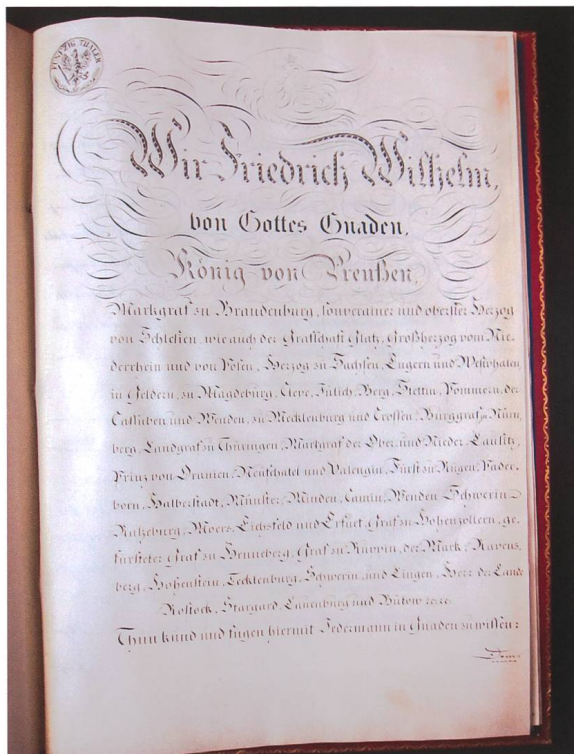 FUNFZIG THALER
Wir Friedrich Wilhelm,
von Gottes Gnaden,
König von Preußen,
Markgraf zu Brandenburg, souverainer und oberster Herzog
von Schlesien, wie auch der Grafschaft Glatz, Großherzog vom Nie-
derrhein und von Posen, Herzog zu Sachsen, Engern und Westphalen
in Geldern, zu Magdeburg, Cleve, Jülich, Berg, Stettin, Pommern, der
Cassuben und Wenden, zu Mecklenburg und Crossen, Burggraf zu Nürn,
berg, Landgraf zu Thüringen, Markgraf der Ober, und Nieder Lausitz,
Prinz von Oranien, Neufchatel und Valengin, Fürst zu Rügen, Pader,
born, Halberstadt, Münster, Minden, Camin, Wenden, Schwerin
Ratzeburg, Moers, Eichsfeld und Erfurt, Graf zu Hohenzollern, ge,
fürsteter Graf zu Henneberg, Graf zu Ruppin, der Mark, Ravens,
berg, Hohenstein, Tecklenburg, Schwerin, und Lingen, Herr der Lande
Rostock, Stargard, Lauenburg und Bütow
Thun kund und fügen hiermit Jedermann in Gnaden zu wissen: